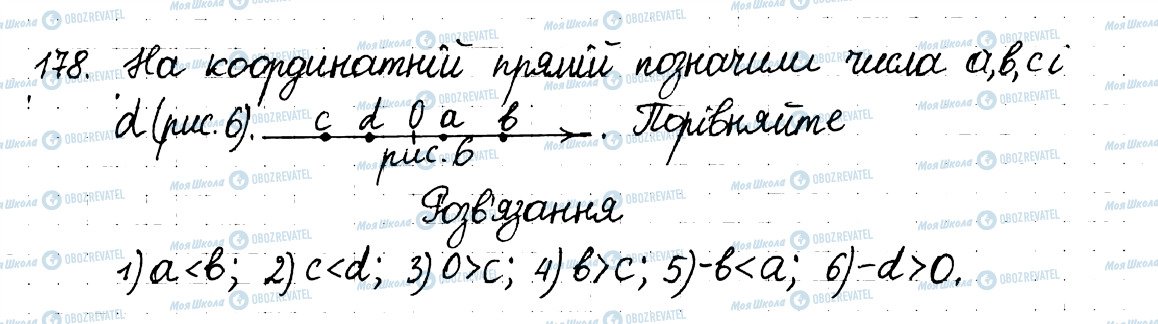 178. На координатній прямій позначили числа a, b, c і
d (рис. 6). c d 0 a b . Порівняйте
рис. 6
Розв'язання
1) a < b; 2) c < d; 3) 0 > c; 4) b > c; 5) -b < a; 6) -d > 0.